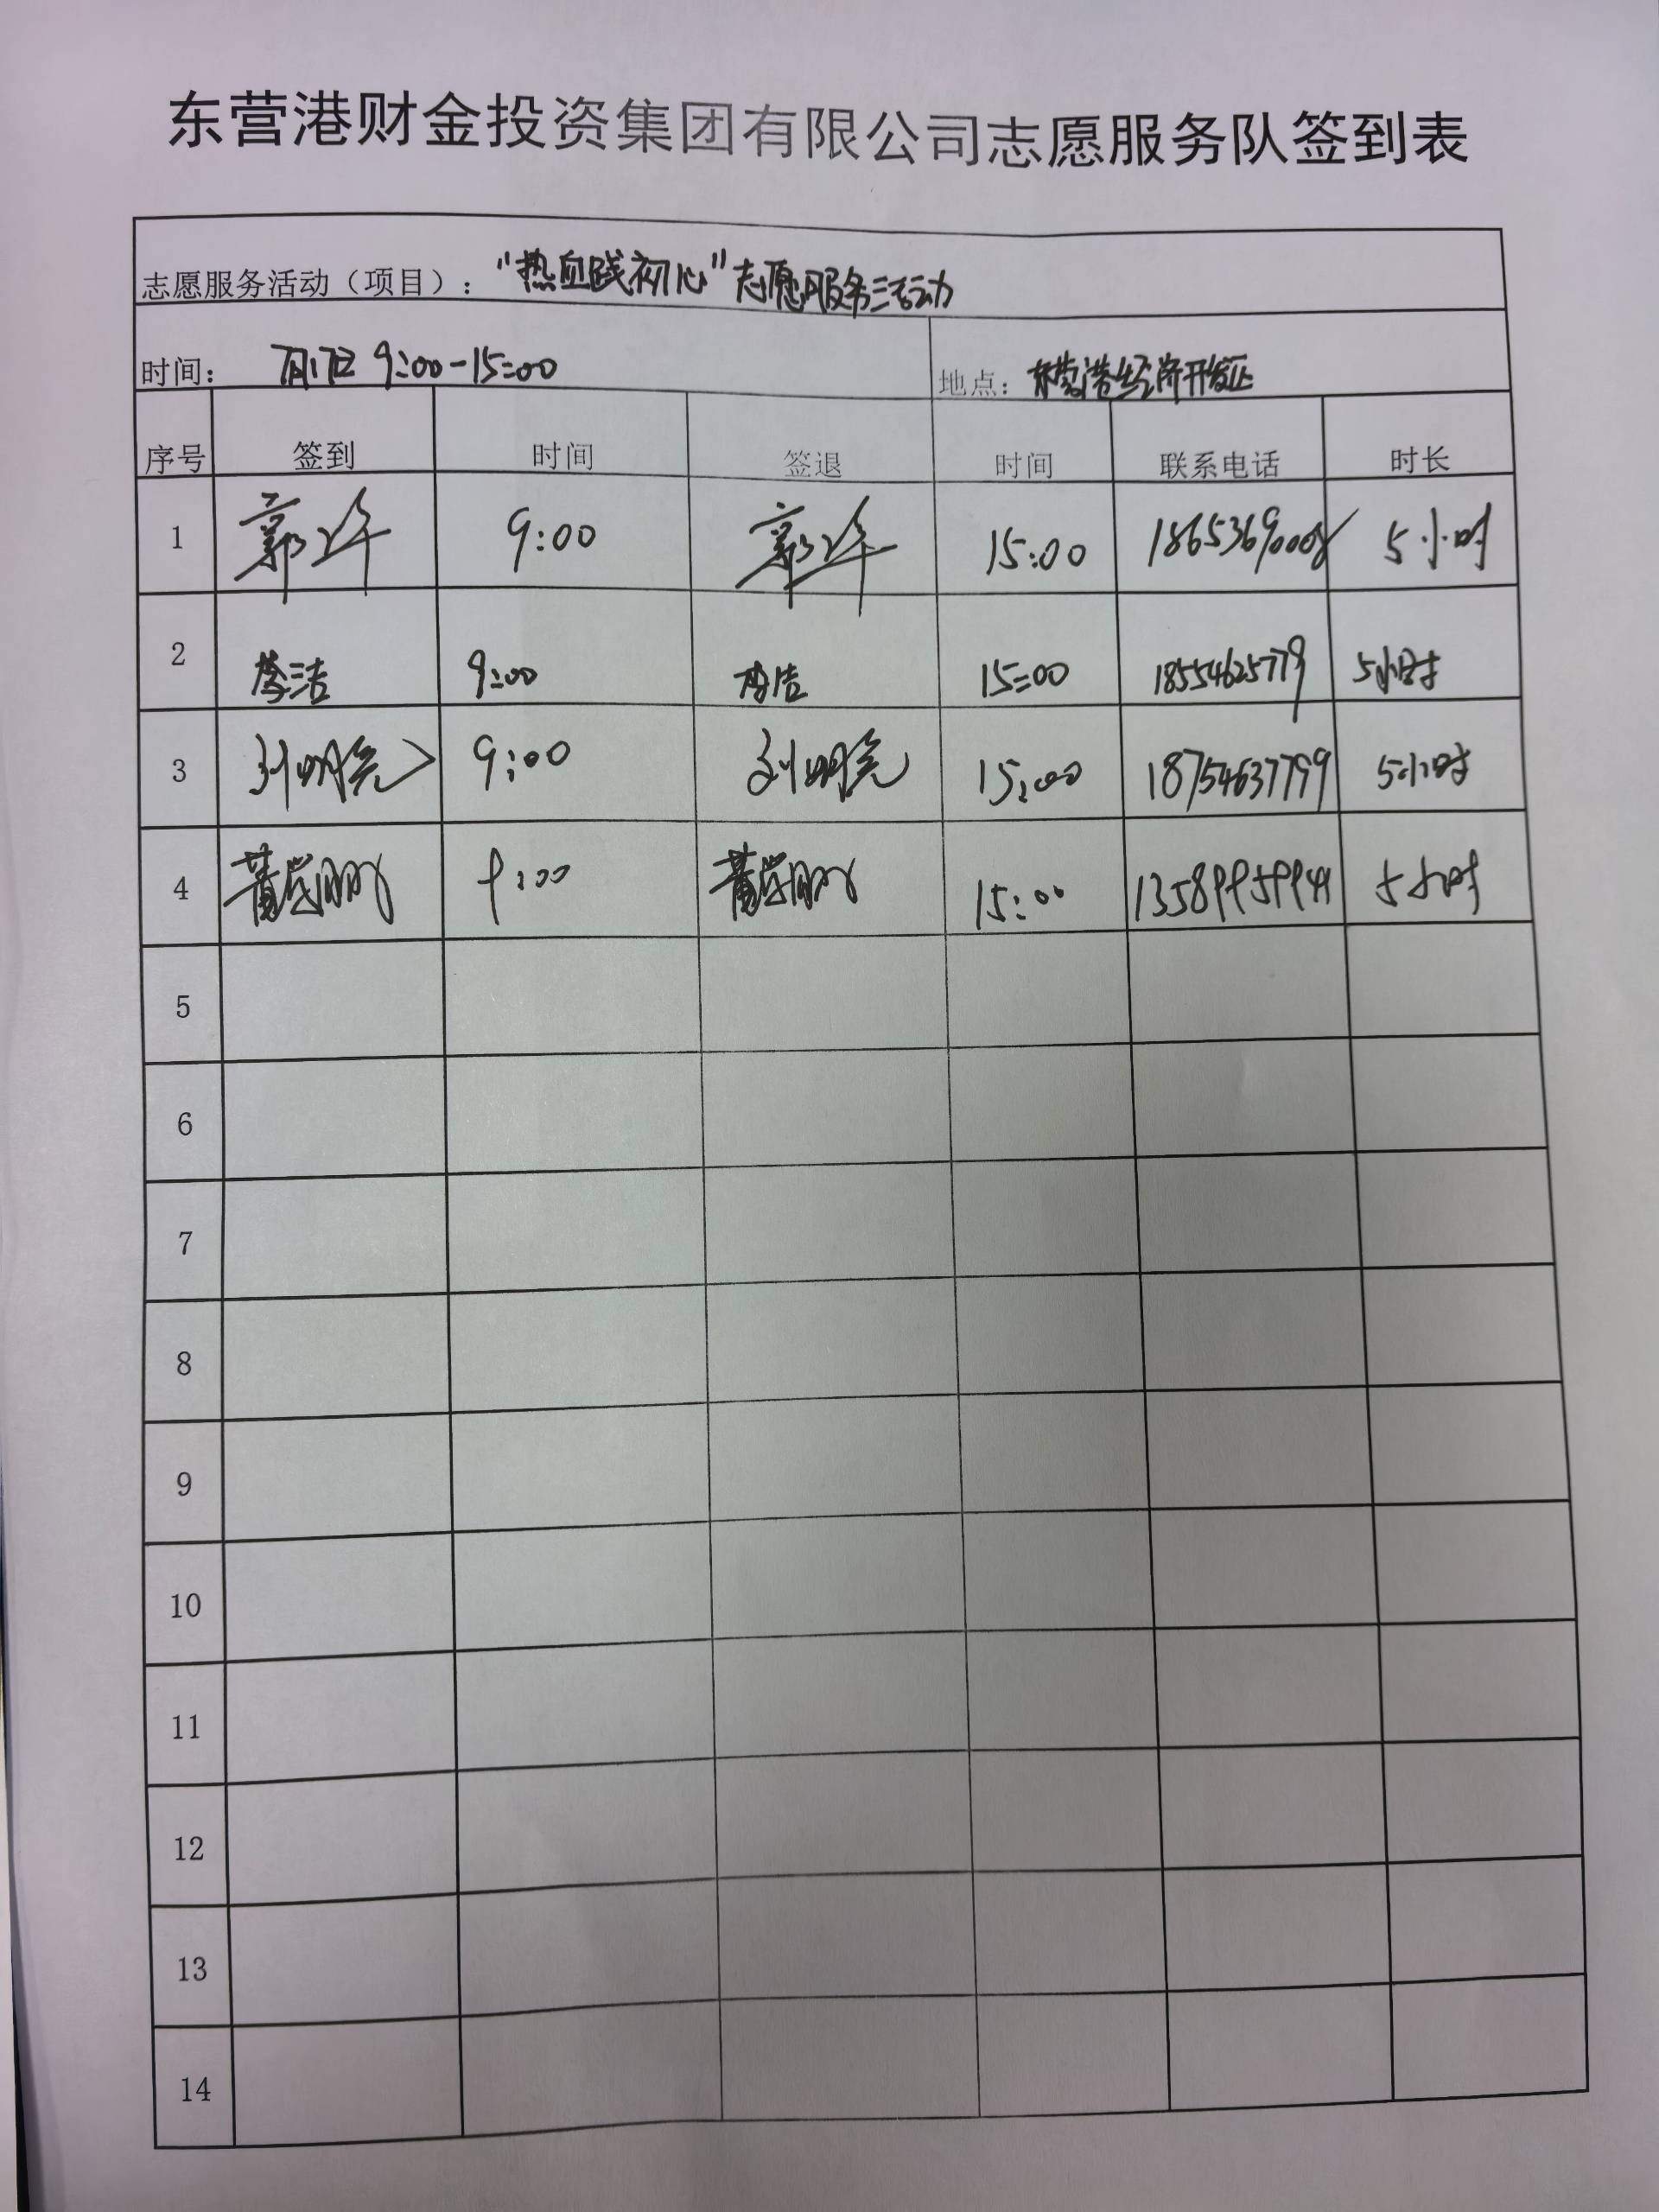 东营港财金投资集团有限公司志愿服务队签到表
志愿服务活动（项目）："热血践初心"志愿服务活动
时间： 9:00-15:00 地点：东营港经济开发区
序号 签到 时间 签退 时间 联系电话 时长
1 郭 9:00 郭 15:00 18653690008 5小时
2 李洁 9:00 李洁 15:00 18554625779 5小时
3 刘明亮 9:00 刘明亮 15:00 18754637799 5小时
4 9:00 15:00 5小时
5
6
7
8
9
10
11
12
13
14